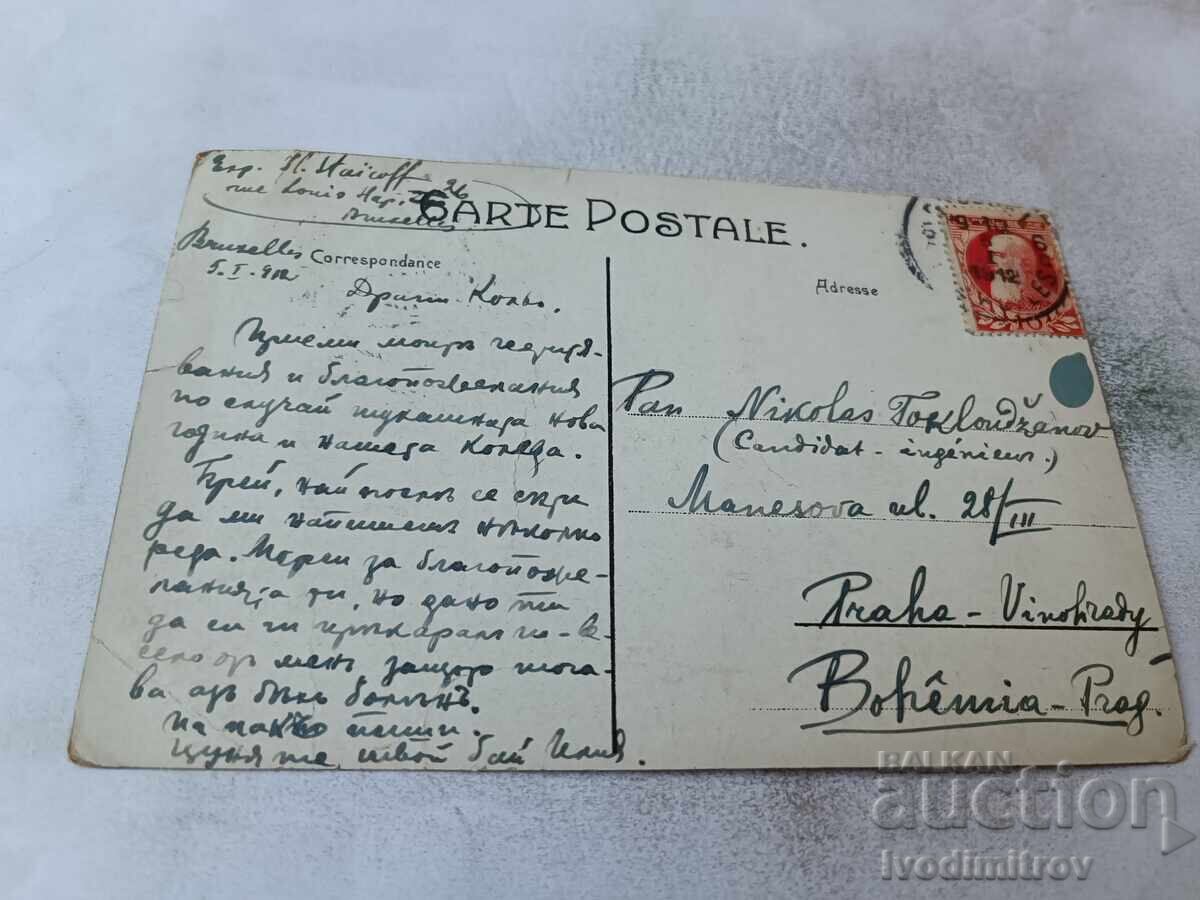 Exp. Il. Staïcoff
rue Louis Hap, 26
Bruxelles
CARTE POSTALE.
Bruxelles
5.I.912
Correspondance
Adresse
Драги Кольо.
Приеми моитѣ честитя-
вания и благопожелания
по случай тукашната нова
година и нашата Коледа.
Брей, най послѣ се
да ми напишешъ нѣколко
реда. Мерси за благопоже-
ланията ти, но
да си ги по-
отъ менъ, защото тога-
ва азъ бѣхъ боленъ.
пиши.
Цунка те твой бай Илия.
Pan Nikolas Tokloudžanov
(Candidat-ingénieur.)
Manesova ul. 28/III
Praha-Vinohrady
Bohêmia-Prag.
9-10
1912
BALKAN
auction
Ivodimitrov